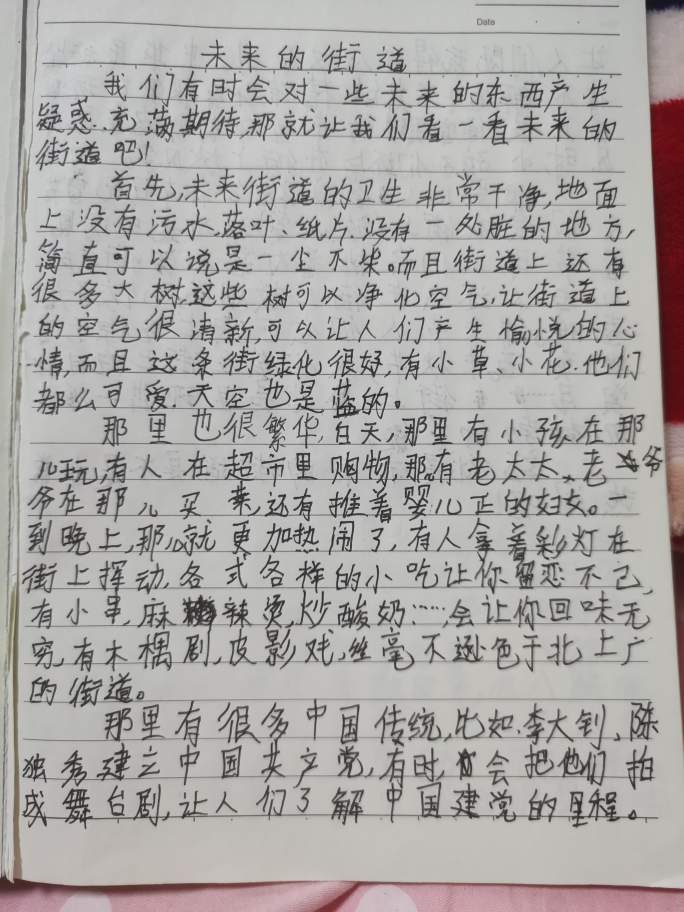 Date
未来的街道
我们有时会对一些未来的东西产生
疑惑、充满期待,那就让我们看一看未来的
街道吧!
首先,未来街道的卫生非常干净,地面
上没有污水、落叶、纸片、没有一处脏的地方,
简直可以说是一尘不染。而且街道上还有
很多大树,这些树可以净化空气,让街道上
的空气很清新,可以让人们产生愉悦的心
情,而且这条街绿化很好,有小草、小花.他们
都么可爱.天空也是蓝的。
那里也很繁华,白天,那里有小孩在那
儿玩,有人在超市里购物,那有老太太、老爷
爷在那儿买菜,还有推着婴儿正的妇女。一
到晚上,那儿就更加热闹了,有人拿着彩灯在
街上挥动,各式各样的小吃让你留恋不已,
有小串,麻辣烫,炒酸奶……,会让你回味无
穷,有木偶剧,皮影戏,丝毫不逊色于北上广
的街道。
那里有很多中国传统,比如:李大钊、陈
独秀建立中国共产党,有时,会把他们拍
成舞台剧,让人们了解中国建党的里程。